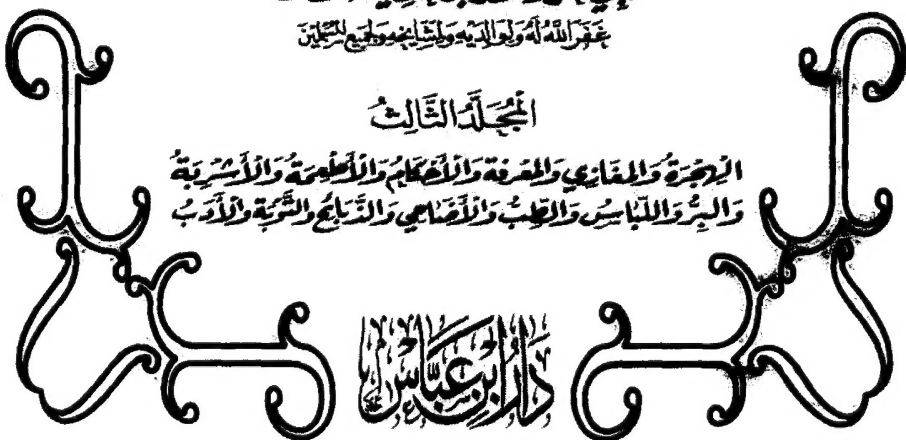 غَفَرَ اللَّهُ لَهُ وَلِوَالِدَيْهِ وَلِمَشَايِخِهِ وَلِجَمِيعِ المُسْلِمِيْنَ
المُجَلَّدُ الثَّالِثُ
الْهِجْرَةُ وَالمَغَازِي وَالمَعْرِفَة وَالْأَحْكَامُ وَالْأَطْعِمَةُ وَالْأَشْرِبَةُ
وَالبِرُّ وَاللِّبَاسُ وَالطِّبُ وَالْأَضَاحِي وَالذَّبَائِحُ وَالتَّوْبَة وَالْأَدَبُ
دَارُ ابْنِ عَبَّاسٍ